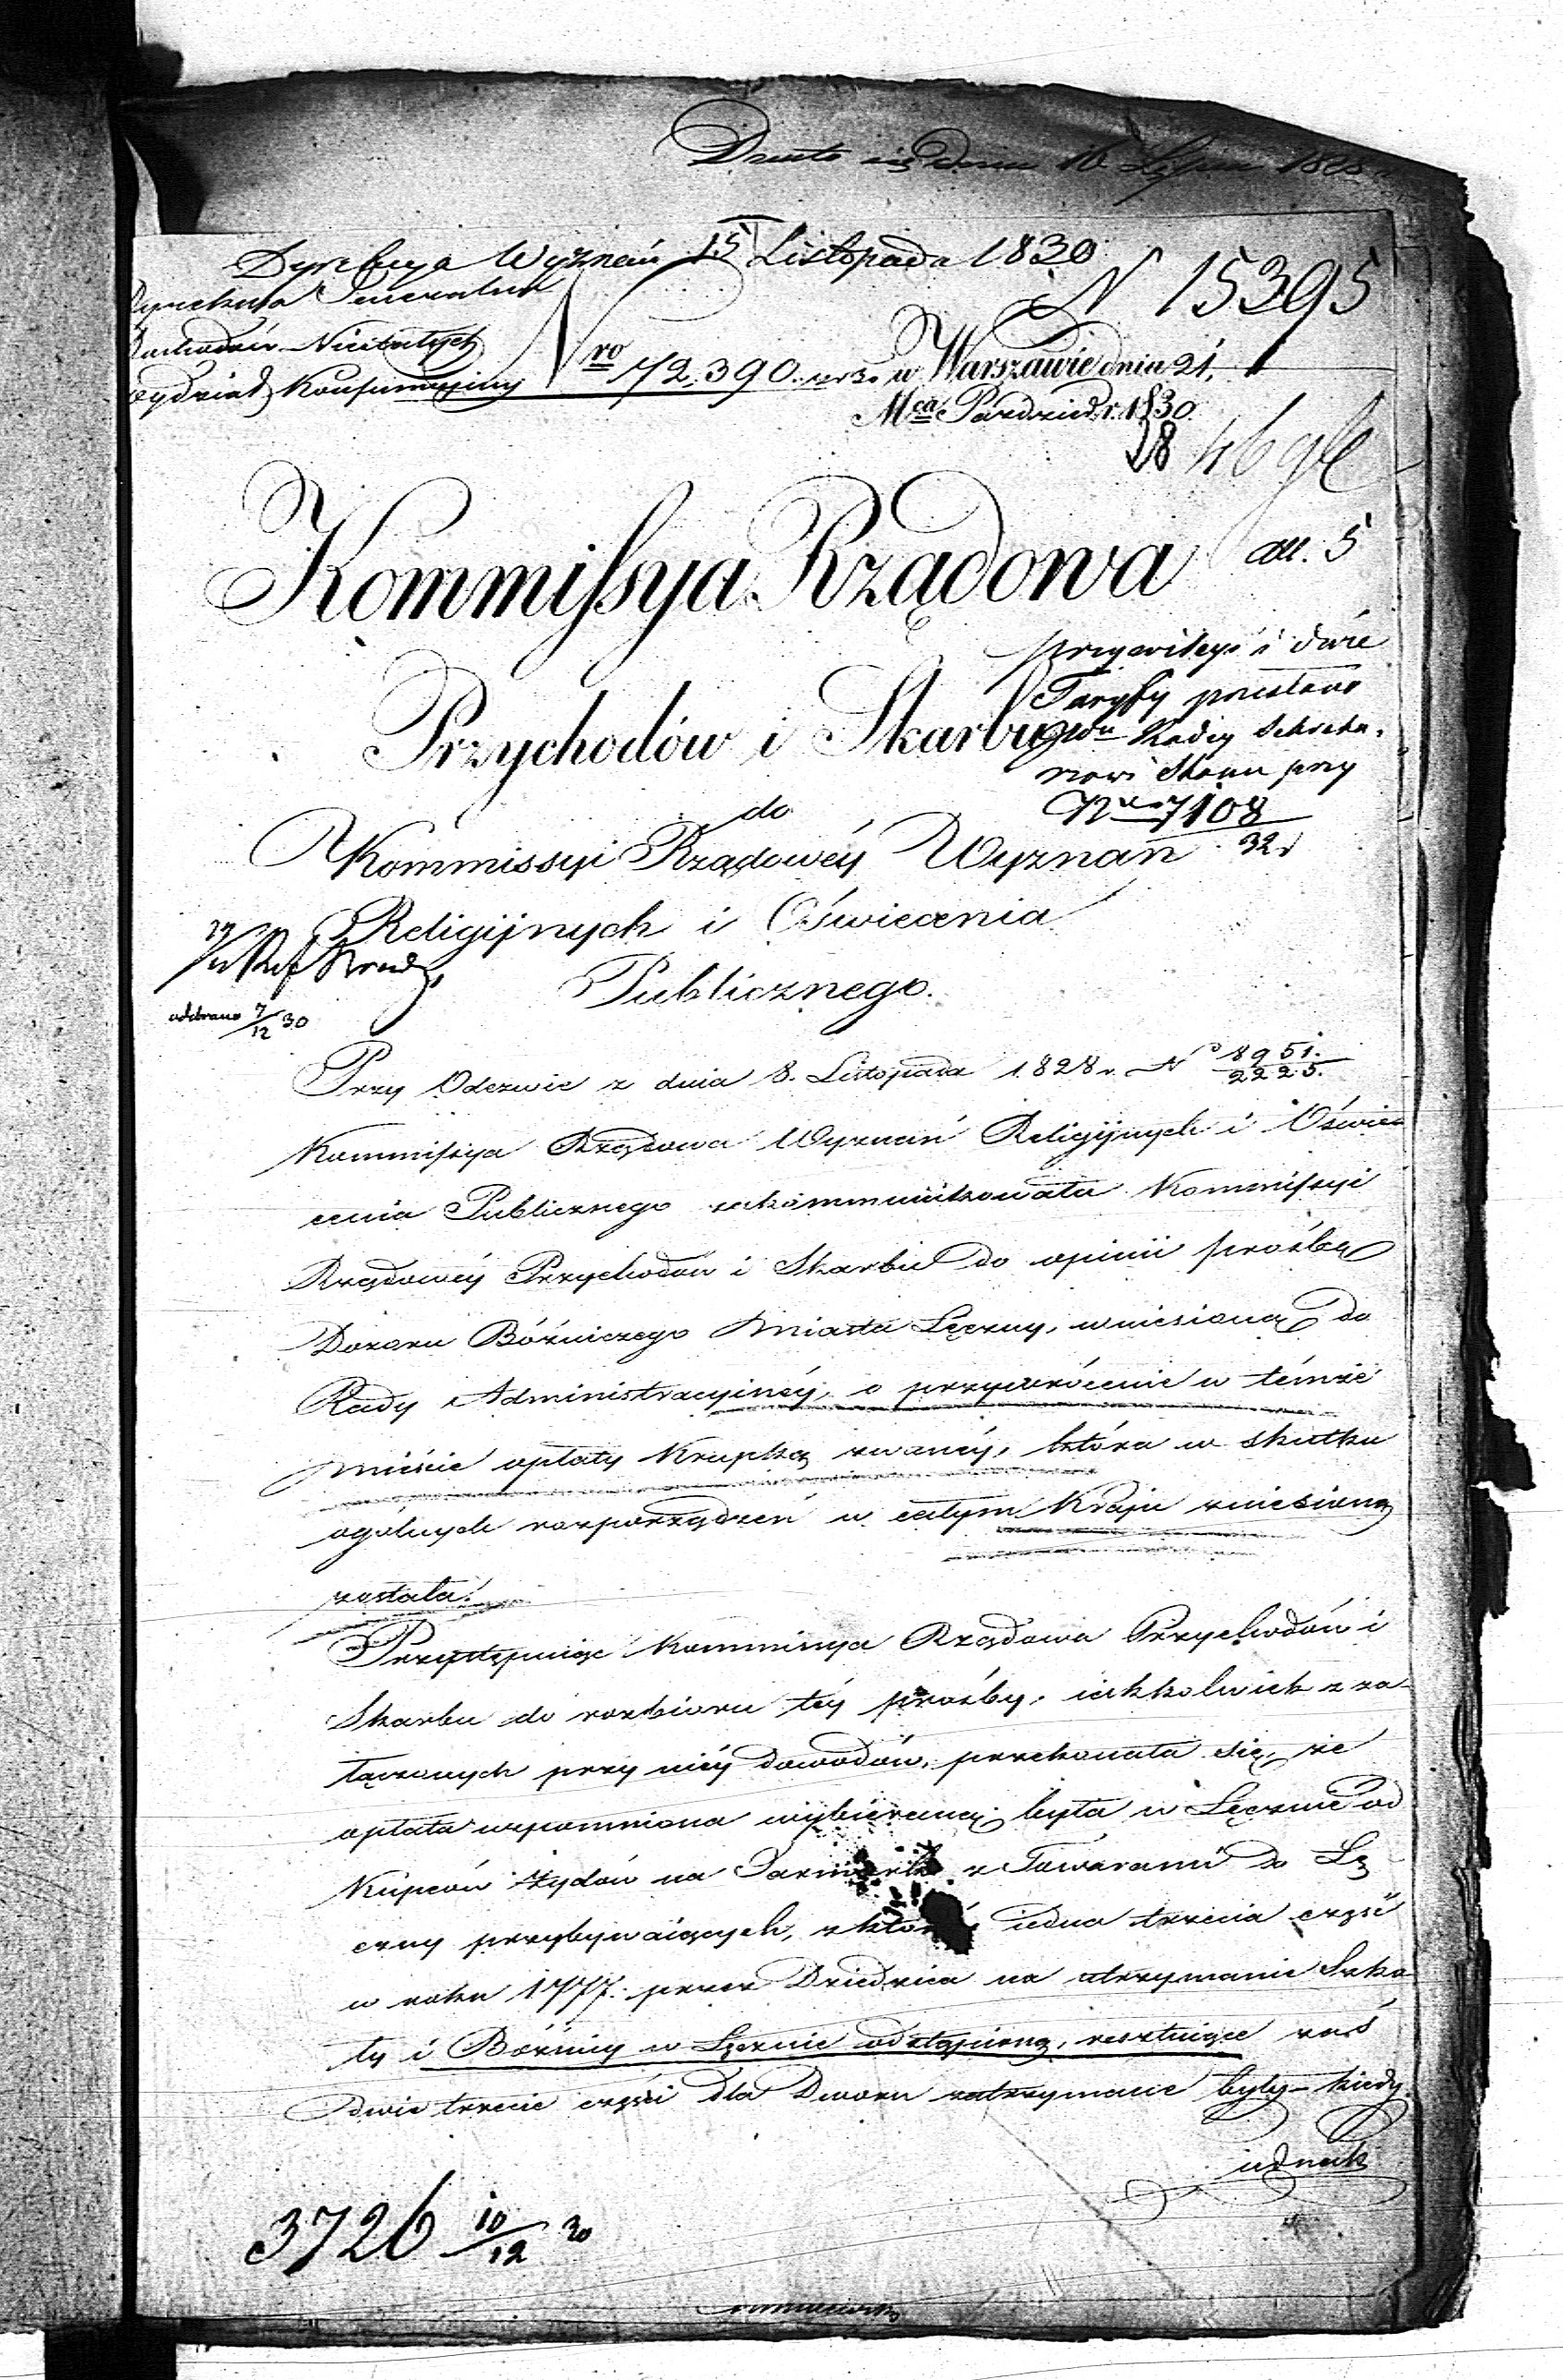 Działo się dnia 16 Lipca
Dyrekcya Wyznań 15 Listopada 1830
N 15395
Dyrekcya Generalna
Dochodów Niestałych
Wydział Konsumcyiny
Nro 72,390. w Warszawie dnia 21.
Mca Paździer. r. 1830.
28
Kommissya Rządowa
all. 5
Przychodów i Skarbu
przywiley i dwie
Taryfy przesłano
Radcy
przy
Nro 7108
32 r
do
Kommissyi Rządowéy Wyznań
Religijnych i Oświecenia
Publicznego.
odebrano 7/12 30
Przy Odezwie z dnia 8. Listopada 1828 r. No 8951./2225.
Kommissya Rządowa Wyznań Religijnych i Oświe
cenia Publicznego zakommunikowała Kommissyi
Rządowéy Przychodów i Skarbu do opinii prośbę
Dozoru Bóżniczego Miasta Łęczny, wniesioną do
Rady Administracyinéy, o przywrócenie w témże
mieście opłaty Krupką zwanéy, która w skutku
ogólnych rozporządzeń w całym Kraju zniesioną
została.
Przystępuiąc Kommissya Rządowa Przychodów i
Skarbu do rozbioru téy prośby, iakkolwiek z za-
łączonych przy niéy dowodów, przekonała się, że
opłata wspomniona wybieraną była w Łęcznie od
Kupców żydów na Jarmarki z Towarami do Łę
czny przybywaiących, z któréy iedna trzecia część
w roku 1777. przez Dziedzica na utrzymanie Szko
ły i Bóżnicy w Łęcznie odstąpioną, resztuiące zaś
dwie trzecie części dla Dworu zatrzymane były – kiedy
iednak
3726 10/12 30